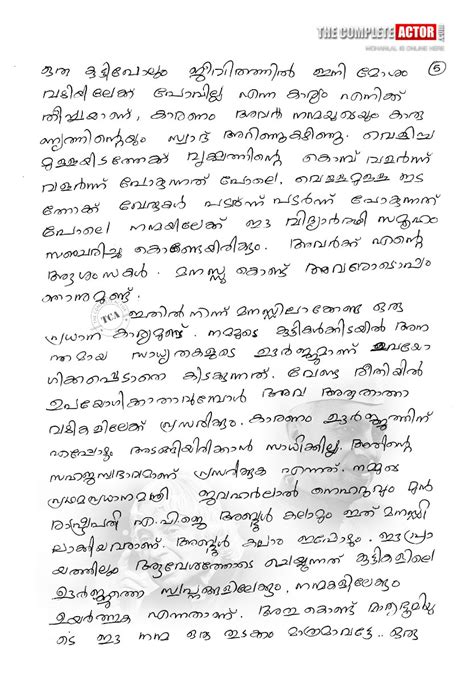 THE COMPLETE ACTOR .COM
MOHANLAL IS ONLINE HERE
5
ഒരു കുട്ടിപോലും ജീവിതത്തിൽ ഇനി മോശം
വഴിയിലേക്ക് പോവില്ല എന്ന കാര്യം എനിക്ക്
തീർച്ചയാണ്, കാരണം അവർ നന്മയുടെയും കാരു
ണ്യത്തിന്റെയും സ്വാദ് അറിഞ്ഞുകഴിഞ്ഞു. വെളിച്ച
മുള്ളയിടത്തേക്ക് വൃക്ഷത്തിന്റെ കൊമ്പ് വളർന്ന്
വളർന്ന് പോകുന്നത് പോലെ, വെള്ളമുള്ള ഇട
ത്തേക്ക് വേരുകൾ പടർന്ന് പടർന്ന് പോകുന്നത്
പോലെ നന്മയിലേക്ക് ഈ വിദ്യാർത്ഥി സമൂഹം
സഞ്ചരിച്ചു കൊണ്ടേയിരിക്കും. അവർക്ക് എന്റെ
ആശംസകൾ. മനസ്സു കൊണ്ട് അവരോടൊപ്പം
ഞാനുമുണ്ട്.
TCA
ഇതിൽ നിന്ന് മനസ്സിലാക്കേണ്ട ഒരു
പ്രധാന കാര്യമുണ്ട്. നമ്മുടെ കുട്ടികൾക്കിടയിൽ അന
ന്തമായ സാധ്യതകളുടെ ഊർജ്ജമാണ് ഉപയോ
ഗിക്കപ്പെടാതെ കിടക്കുന്നത്. വേണ്ട രീതിയിൽ
ഉപയോഗിക്കാതാവുമ്പോൾ അവ അരുതാത്ത
വഴികളിലേക്ക് പ്രസരിക്കും. കാരണം ഊർജ്ജത്തിന്
എപ്പോഴും അടങ്ങിയിരിക്കാൻ സാധിക്കില്ല, അതിന്റെ
സഹജസ്വഭാവമാണ് പ്രസരിക്കുക എന്നത്. നമ്മുടെ
പ്രഥമപ്രധാനമന്ത്രി ജവഹർലാൽ നെഹറുവും മുൻ
രാഷ്ട്രപതി എ.പി.ജെ അബ്ദുൾ കലാമും ഇത് മനസ്സി
ലാക്കിയവരാണ്. അബ്ദുൾ കലാം ഇപ്പോഴും, ഈ പ്രാ
യത്തിലും ആവേശത്തോടെ ചെയ്യുന്നത് കുട്ടികളിലെ
ഊർജ്ജത്തെ സ്വപ്നങ്ങളിലേക്കും, നന്മകളിലേക്കും
ഉയർത്തുക എന്നതാണ്. അതു കൊണ്ട് മാതൃഭൂമിയു
ടെ ഈ നന്മ ഒരു തുടക്കം മാത്രമാവട്ടേ.. ഒരു